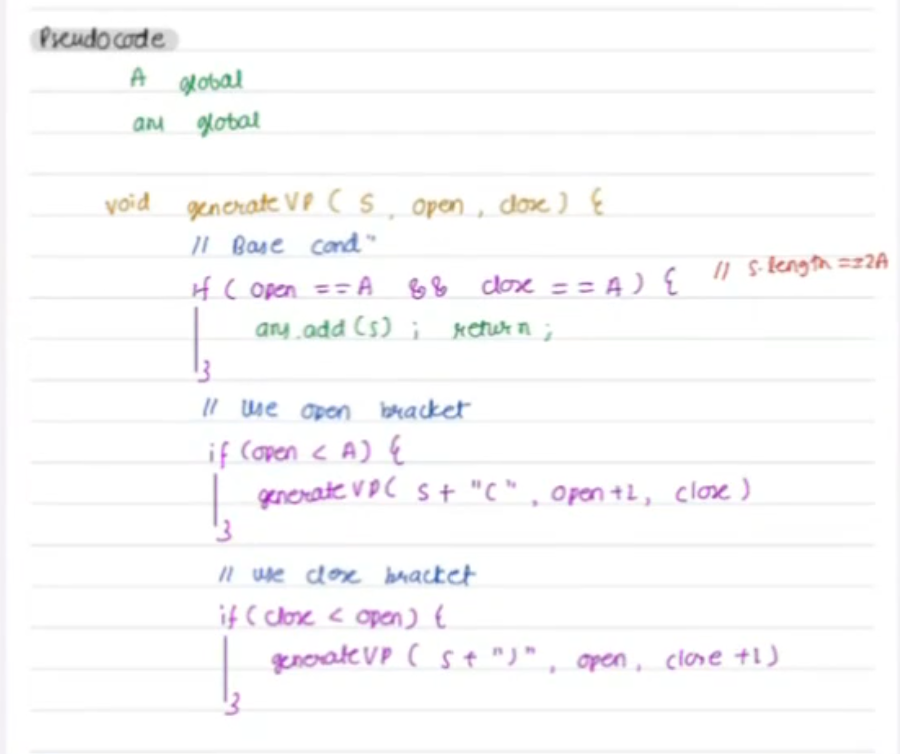 Pseudocode
A global
ans global
void generateVP ( S, open, close) {
// Base condⁿ
if ( open == A && close == A) { // S.length == 2A
ans.add(S) ; return ;
}
// use open bracket
if (open < A) {
generateVP( S + "(", open+1, close )
}
// use close bracket
if ( close < open) {
generateVP ( S + ")", open, close +1)
}